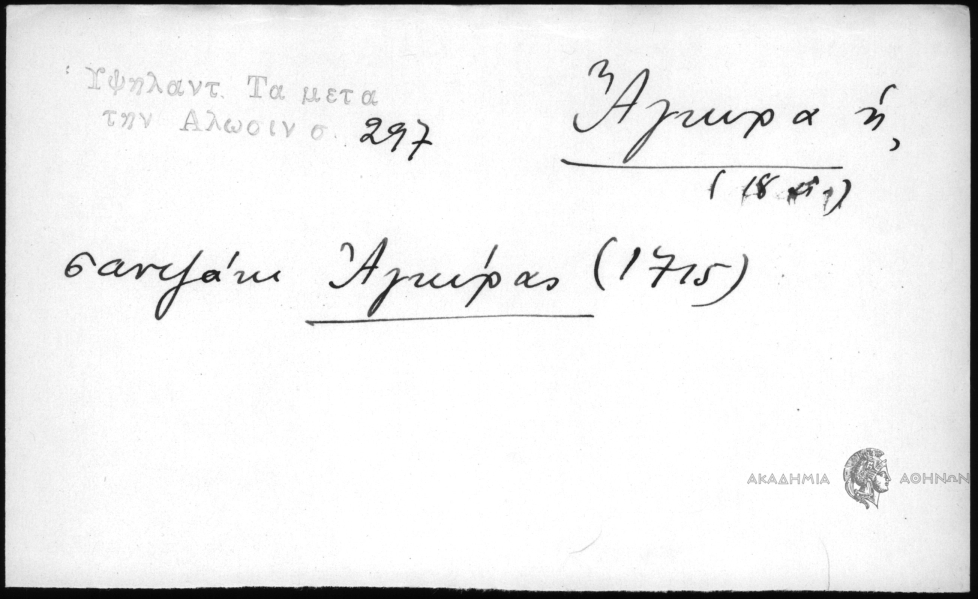 Ὑψηλαντ. Τα μετα
την Αλωσιν σ. 297
Ἄγκυρα ἡ,
(18
σαντζάκι Ἀγκύρας (1715)
ΑΚΑΔΗΜΙΑ ΑΘΗΝΩΝ